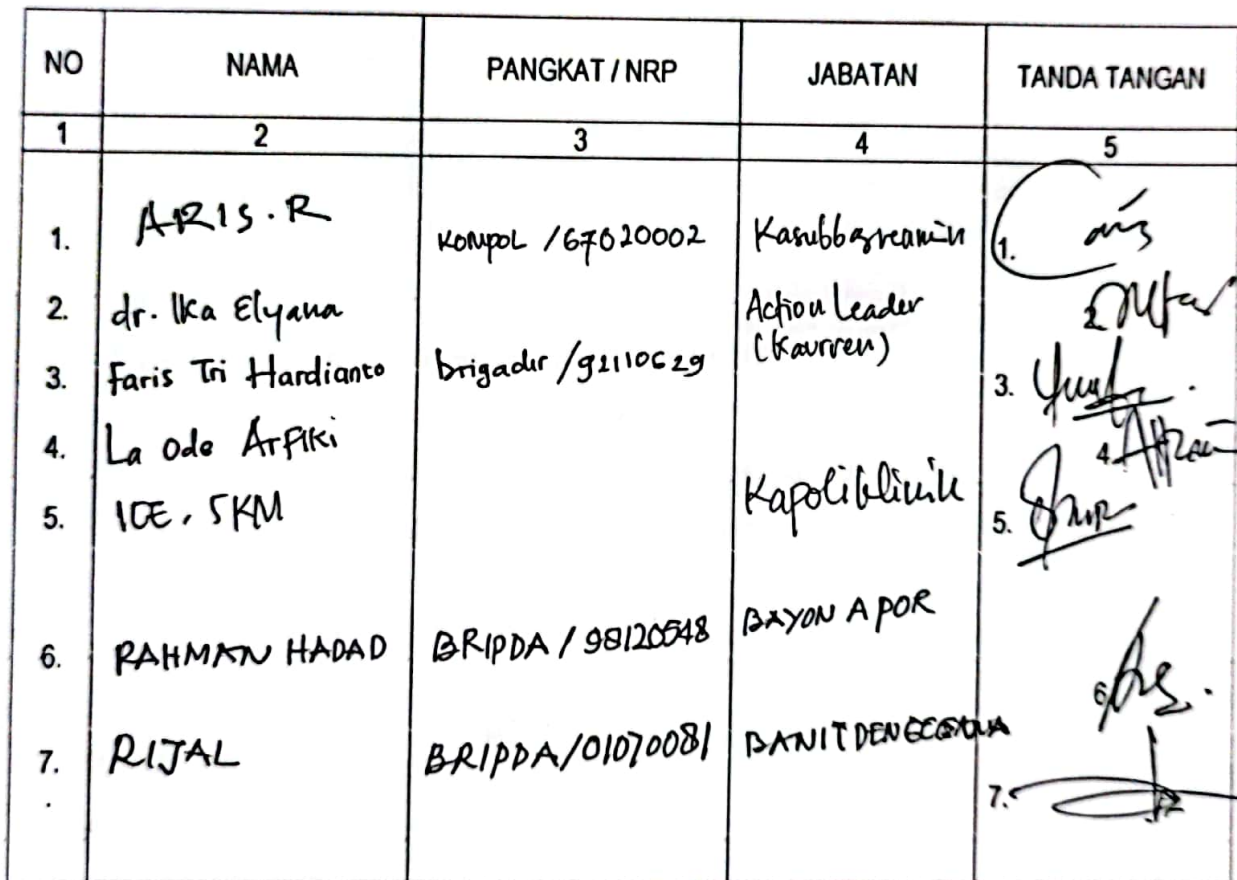 NO NAMA PANGKAT / NRP JABATAN TANDA TANGAN
1 2 3 4 5
1. ARIS. R KOMPOL / 67020002 Kasubbagrenmin 1. aris
2. dr. Ika Elyana Action Leader 2.
(Kaurren)
3. Faris Tri Hardianto brigadir / 92110629 3.
4. La Ode Arfiki 4.
5. ICE, SKM Kapoliklinik 5.
6. RAHMAN HADAD BRIPDA / 98120548 BAYON A POR 6.
7. RIJAL BRIPDA/01070081 7.
.